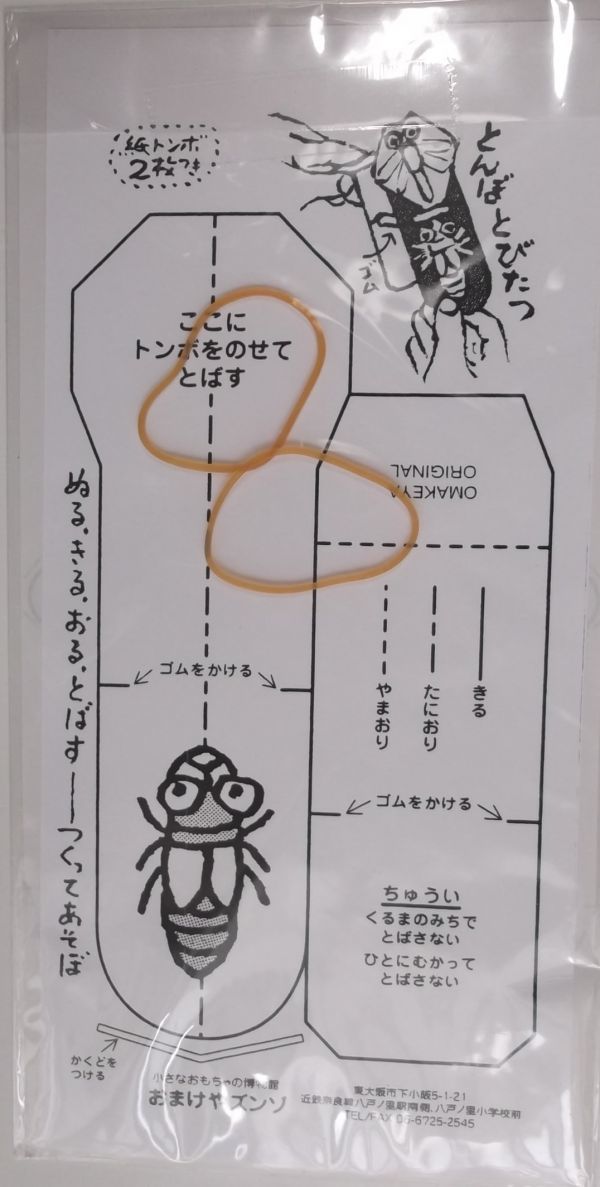 紙トンボ
2枚つき
とんぼとびたつ
ゴム
ここに
トンボをのせて
とばす
OMAKEYA
ORIGINAL
ぬる、きる、おる、とばす──つくってあそぼ
きる
たにおり
やまおり
ゴムをかける
ゴムをかける
ちゅうい
くるまのみちで
とばさない
ひとにむかって
とばさない
かくどを
つける
小さなおもちゃの博物館
おまけや ズンゾ
東大阪市下小阪5-1-21
近鉄奈良線八戸ノ里駅南側、八戸ノ里小学校前
TEL/FAX 06-6725-2545